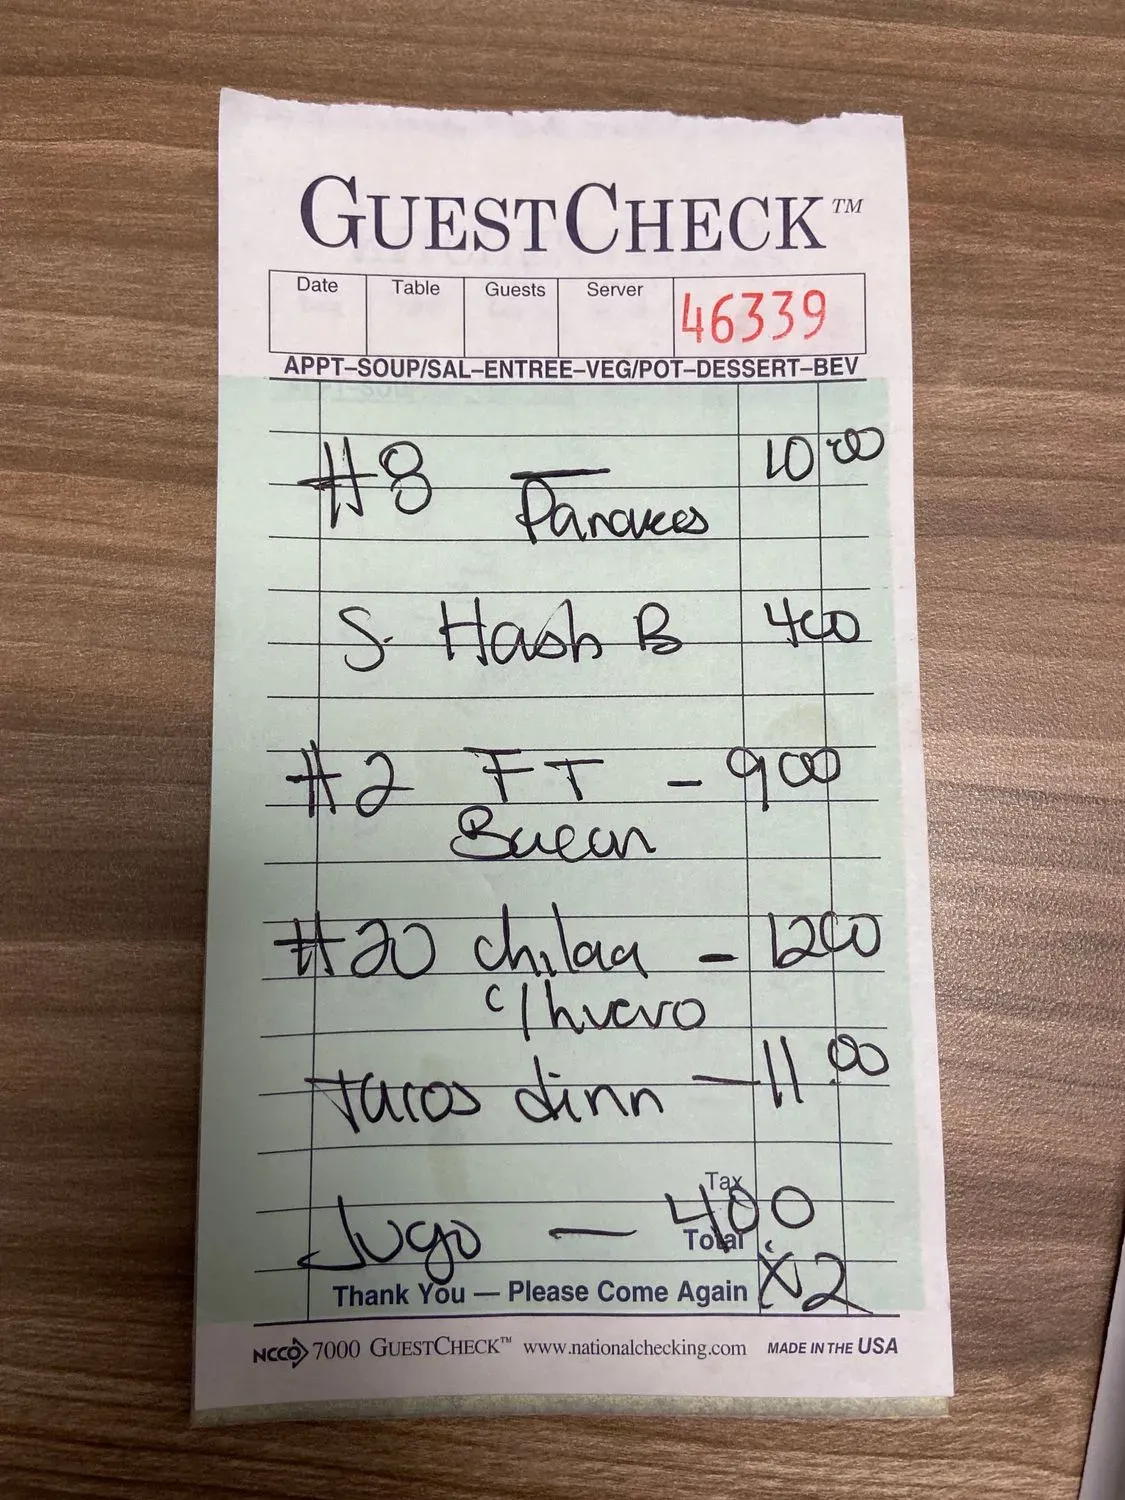 GUESTCHECK™
Date Table Guests Server 46339
APPT–SOUP/SAL–ENTREE–VEG/POT–DESSERT–BEV
#8 — 10.00
S. Hash B 400
#2 FT - 900
#20 chilaq - 1200
c/huevo
Tacos dinn - 11.00
Tax
Jugo — 400
Total
x2
Thank You — Please Come Again
NCCO 7000 GUESTCHECK™ www.nationalchecking.com MADE IN THE USA